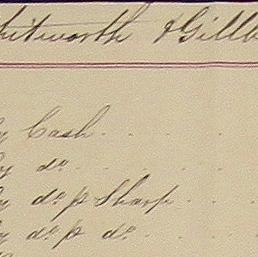 hitworth & Gillb
By Cash
By do
By do p Sharp
By do p do